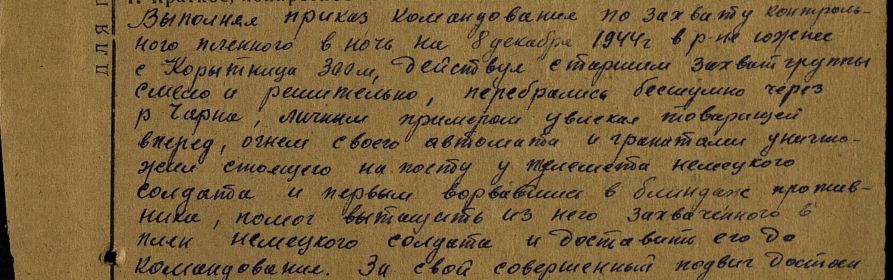 Выполняя приказ командования по захвату контроль-
ного пленного в ночь на 8 декабря 1944г в р-не южнее
с Корытница 300м, действуя старшим захват группы
смело и решительно, перебрались бесшумно через
р Чарна, личным примером увлекая товарищей
вперед, огнем своего автомата и гранатами уничто-
жил стоящего на посту у пулемета немецкого
солдата и первым ворвавшись в блиндаж против-
ника, помог вытащить из него захваченного в
плен немецкого солдата и доставить его до
командования. За свой совершенный подвиг достоен